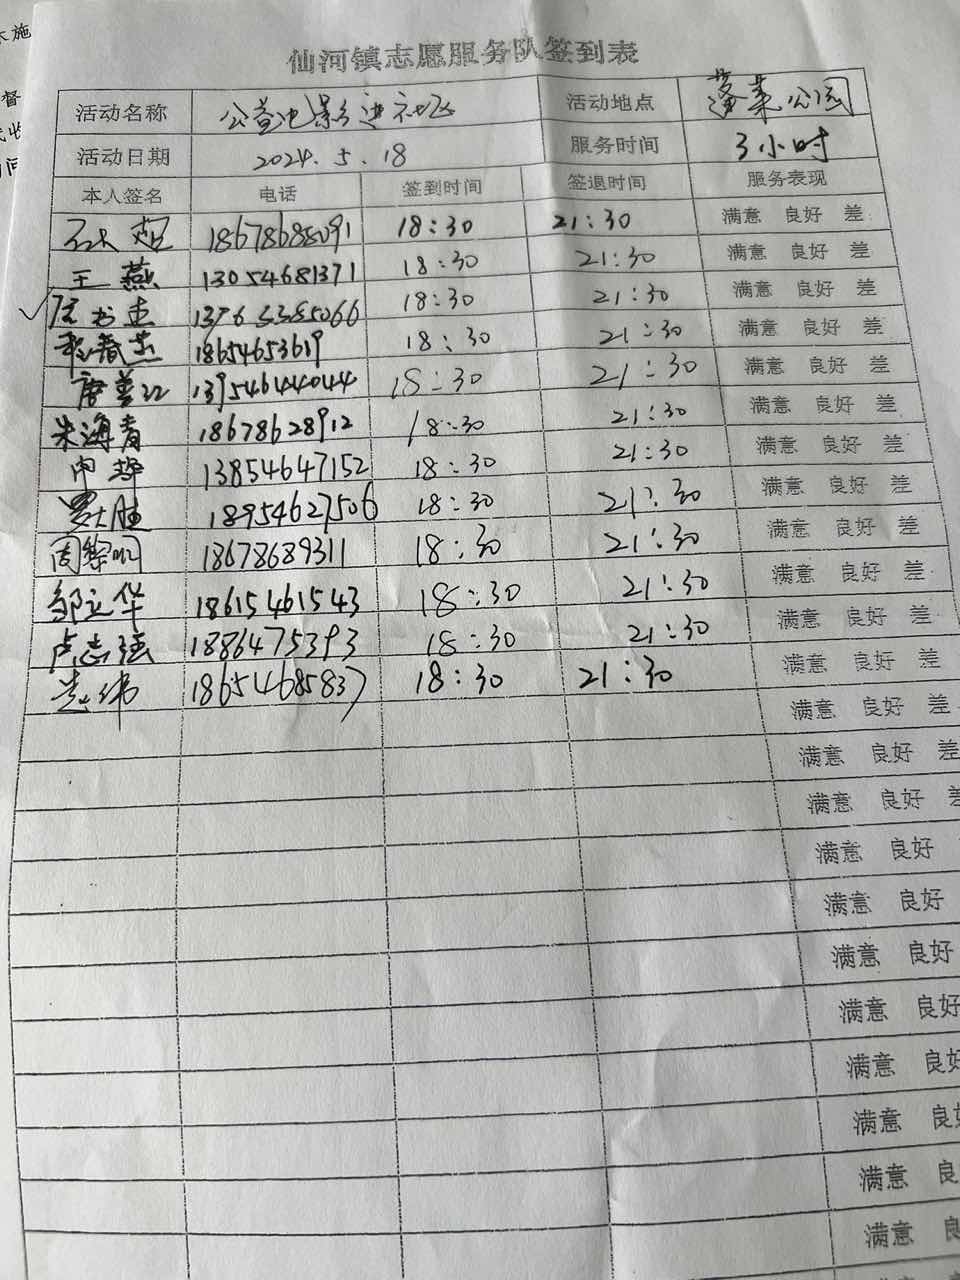 仙河镇志愿服务队签到表
活动名称 公益电影进社区 活动地点 蓬莱公园
活动日期 2024.5.18 服务时间 3小时
本人签名 电话 签到时间 签退时间 服务表现
18678688091 18:30 21:30 满意 良好 差
王燕 13054681371 18:30 21:30 满意 良好 差
18:30 21:30 满意 良好 差
程春燕 18654653619 18:30 21:30 满意 良好 差
唐美江 13954644044 18:30 21:30 满意 良好 差
朱海青 18678628912 18:30 21:30 满意 良好 差
13854647152 18:30 21:30 满意 良好 差
18954627506 18:30 21:30 满意 良好 差
18678689311 18:30 21:30 满意 良好 差
邹立华 18615461543 18:30 21:30 满意 良好 差
卢志强 1886475393 18:30 21:30 满意 良好 差
18654685837 18:30 21:30 满意 良好 差
满意 良好 差
满意 良好 差
满意 良好 差
满意 良好
满意 良好
满意 良好
满意 良好
满意 良好
满意 良
满意 良
满意 良